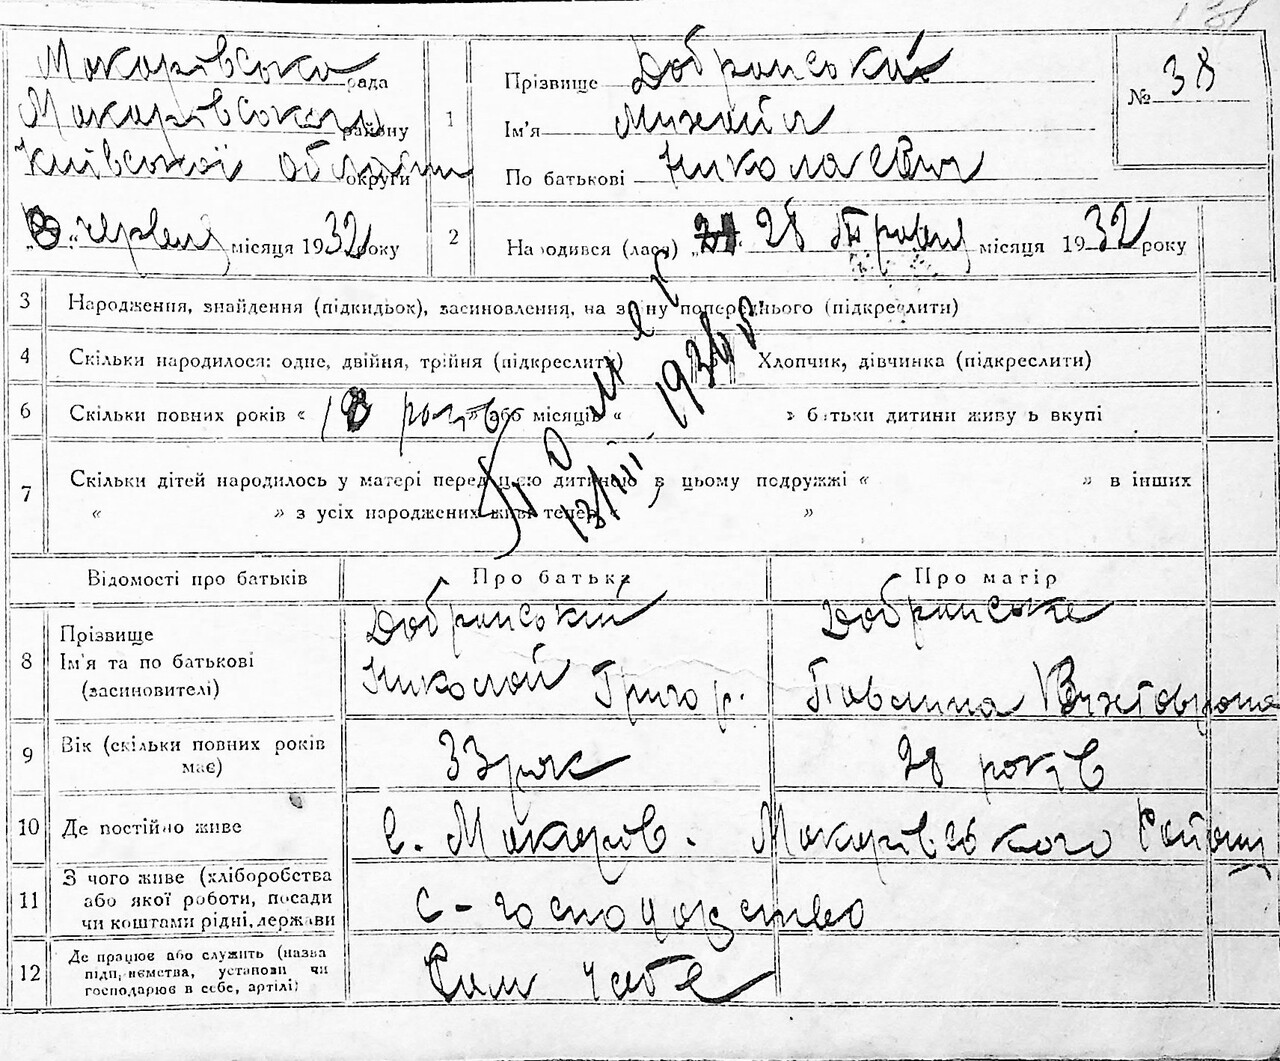 131
Макарівська рада
Макарівського району
Київської області округи
8 червня місяця 1932 року
1
Прізвище Добранський
Ім'я Михайл
По батькові Николаевич
№ 38
2
Народився (лася) „ 28 Травня місяця 1932 року
3 Народження, знайдення (підкидьок), засиновлення, на зміну попереднього (підкреслити)
4 Скільки народилося: одне, двійня, трійня (підкреслити) Хлопчик, дівчинка (підкреслити)
6 Скільки повних років « 18 років » або місяців « » батьки дитини живуть вкупі
7 Скільки дітей народилось у матері перед цією дитиною в цьому подружжі « » в інших
« » з усіх народжених живі тепер « »
Помер
13/III 1934 р
Відомості про батьків Про батька Про матір
8 Прізвище
Ім'я та по батькові
(засиновителі)
Добранський
Николай Григор.
Добранська
Павлина
9 Вік (скільки повних років
має)
33 рок
28 років
10 Де постійно живе с. Макарів. Макарівського Району
11 З чого живе (хліборобства
або якої роботи, посади
чи коштами рідні, держави
с-господарство
12 Де працює або служить (назва
підприємства, установи чи
господарює в себе, артілі)
Сам